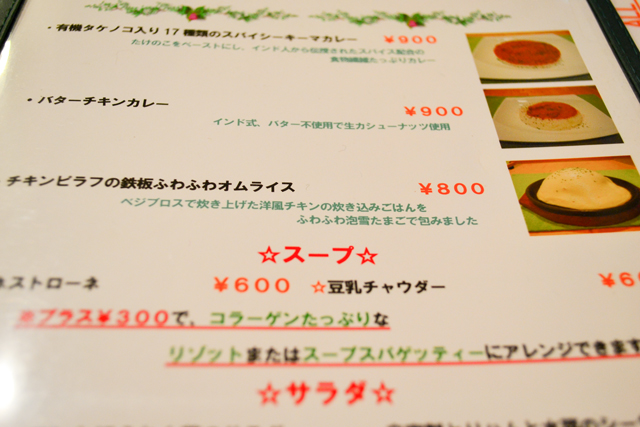 ・有機タケノコ入り17種類のスパイシーキーマカレー ¥900
たけのこをペーストにし、インド人から伝授されたスパイス配合の
食物繊維たっぷりカレー
・バターチキンカレー ¥900
インド式、バター不使用で生カシューナッツ使用
チキンピラフの鉄板ふわふわオムライス ¥800
ベジブロスで炊き上げた洋風チキンの炊き込みごはんを
ふわふわ泡雪たまごで包みました
☆スープ☆
ネストローネ ¥600 ☆豆乳チャウダー
※プラス¥300で、コラーゲンたっぷりな
リゾットまたはスープスパゲッティーにアレンジできます
☆サラダ☆